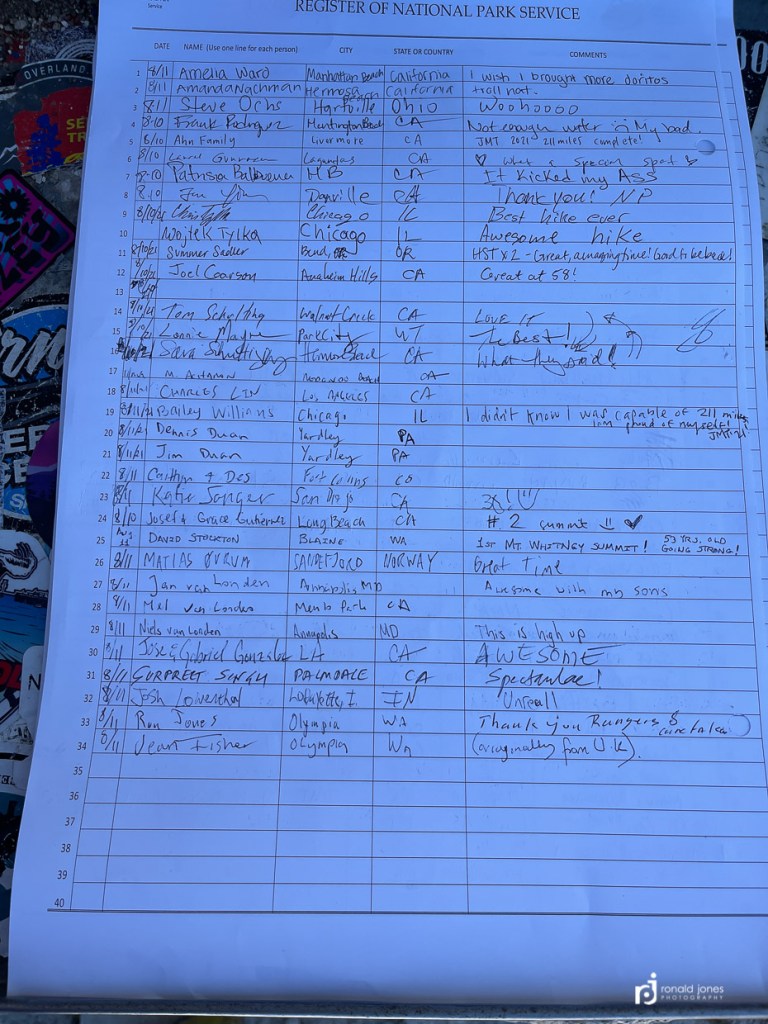 Service
REGISTER OF NATIONAL PARK SERVICE
DATE NAME (Use one line for each person) CITY STATE OR COUNTRY COMMENTS
1 8/11 Amelia Ward Manhattan Beach California I wish I brought more doritos
2 8/11 Amanda Nachman Hermosa Beach California trail not.
3 8/11 Steve Ochs Hartville Ohio Woohoooo
4 8-10 Frank Rodriguez Huntington Beach CA Not enough water :( My bad.
5 8/10 Ahn Family Livermore CA JMT 2021 211 miles complete!
6 8/10 CA ♡ What a special spot
7 8-10 Patrisia HB CA It kicked my ASS
8 8.10 Danville CA Thank you! NP
9 8/10/21 Chicago IL Best hike ever
10 Wojtek Tylka Chicago IL Awesome hike
11 8/10/21 Summer Sadler Bend, OR OR HST x 2 - Great, amazing time! Good to be back!
12 8/10/21 Joel Coarson Anaheim Hills CA Great at 58!
13
14 8/10/21 Tom Schelting Walnut Creek CA LOVE IT
15 8/10/21 Lonnie Park City UT The Best!
16 Sara CA What they said!
17 M. CA
18 8/11/21 CHARLES LIN LOS ANGELES CA
19 8/11/21 Bailey Williams Chicago IL I didn't know I was capable of 211 miles
I am proud of myself! JMT '21
20 8/11/21 Dennis Duan Yardley PA
21 8/11/21 Jim Duan Yardley PA
22 8/11 Caitlyn & Des Fort Collins CO
23 8/11 Katie Songer San Diego CA 3x!
24 8/10 Josef & Grace Gutierrez Long Beach CA # 2 summit ♥
25 DAVID STOCKTON BLAINE WA 1ST MT. WHITNEY SUMMIT! 53 YRS. OLD
GOING STRONG!
26 8/11 MATIAS ØVRUM SANDEFJORD NORWAY Great Time
27 8/11 Jan van Londen Annapolis MD Awesome with my sons
28 8/11 Mel van Londen Menlo Park CA
29 8/11 Niels van Londen Annapolis MD This is high up
30 8/11 Jose & Gabriel Gonzalez LA CA AWESOME
31 8/11 GURPREET SINGH PALMDALE CA Spectacular!
32 8/11 Josh Lowenthal Lafayette, I. IN Unreall
33 8/11 Ron Jones Olympia WA Thank you Rangers &
34 8/11 Jean Fisher Olympia Wa (originally from U.K).
35
36
37
38
39
40
OVERLAND
ronald jones
PHOTOGRAPHY